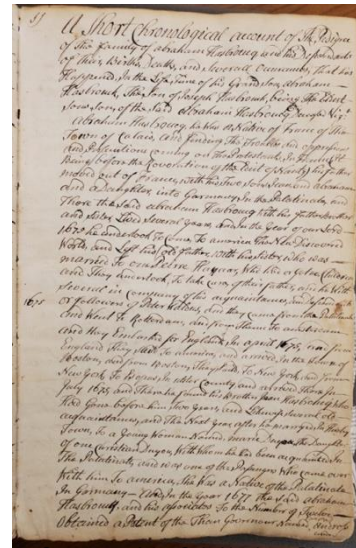 A Short Chronological account of the
of the Family of Abraham Hasbroucq and his Descendants
of their Births, Deaths, and Several Occurrences, that has
Happened, In the Life Time of his Grand Son, Abraham
Hasbrouck, The Son of Joseph Hasbrouck, being the Eldest
Son of the Said Abraham Hasbroucq
Abraham Hasbroucq, he was a Native of France of the
Town of Calais, and finding the Troubles and oppressions
and Persecutions coming on the Protestants In France,
Being before the Revocation of the Edict of Nantz, his father
moved out of France, with his two Sons Jean and Abraham
and a Daughter, into Germany In the Palatinate, and
There the Said Abraham Hasbroucq with his father brother
and sister Lived Several years. And In the Year of our Lord
1675 he undertook To Come, To America the New Discovered
World, and Left his old father, with his sister, who was
married To one Pierre Hayaar, who had one or two Children
and They undertook, To take care of their father; also with
Several in Company of his acquaintance, and
1675 or followers of Peter Waldus, and they came from the Palatinate
and went To Rotterdam, and from Them To Amsterdam
and they Embarked for England. In April 1675, and from
England They Sailed To America, and arrived In the
Boston, and from Boston They Sailed To New York, and from
New York To Esopus In Ulster County, and arrived There in
July 1675, and There he found his Brother Jean Hasbroucq who
Had Gone before him two Years, and Likewise several old
acquaintances, and The Next Year, after he married In Hurley
Town, To a Young Woman Named, Marie Deyo, The Daughter
of one Christian Deyo, With whom he had been acquainted In
The Palatinate, and was one of the Passengers Who came over
With him To America, She Was a Native of the Palatinate
In Germany. And In the Year 1677 The Said Abraham
Hasbroucq, and his associates To the Number of Twelve
obtained a Patent of the Then Governour Named,